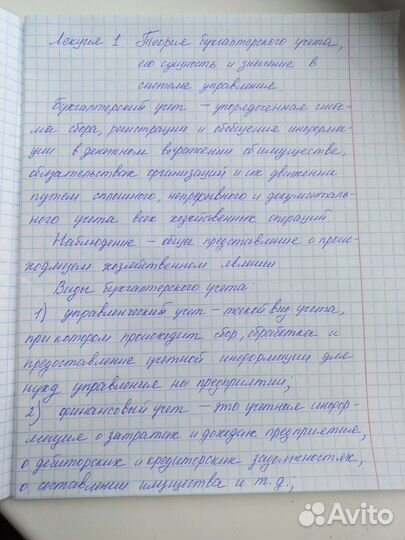 Лекция 1 Теория бухгалтерского учета,
его сущность и значение в
системе управления
Бухгалтерский учет – упорядоченная систе-
ма сбора, регистрации и обобщение информа-
ции в денежном выражении об имуществе,
обязательствах организаций и их движении
путем сплошного, непрерывного и документаль-
ного учета всех хозяйственных операций
Наблюдение – общее представление о проис-
ходящем хозяйственном явлении
Виды бухгалтерского учета:
1) управленческий учет – такой вид учета,
при котором происходит сбор, обработка и
предоставление учетной информации для
нужд управления на предприятии;
2) финансовый учет – это учетная инфор-
мация о затратах и доходах предприятия,
о дебиторских и кредиторских задолженностях,
о составлении имущества и т.д.;
Avito